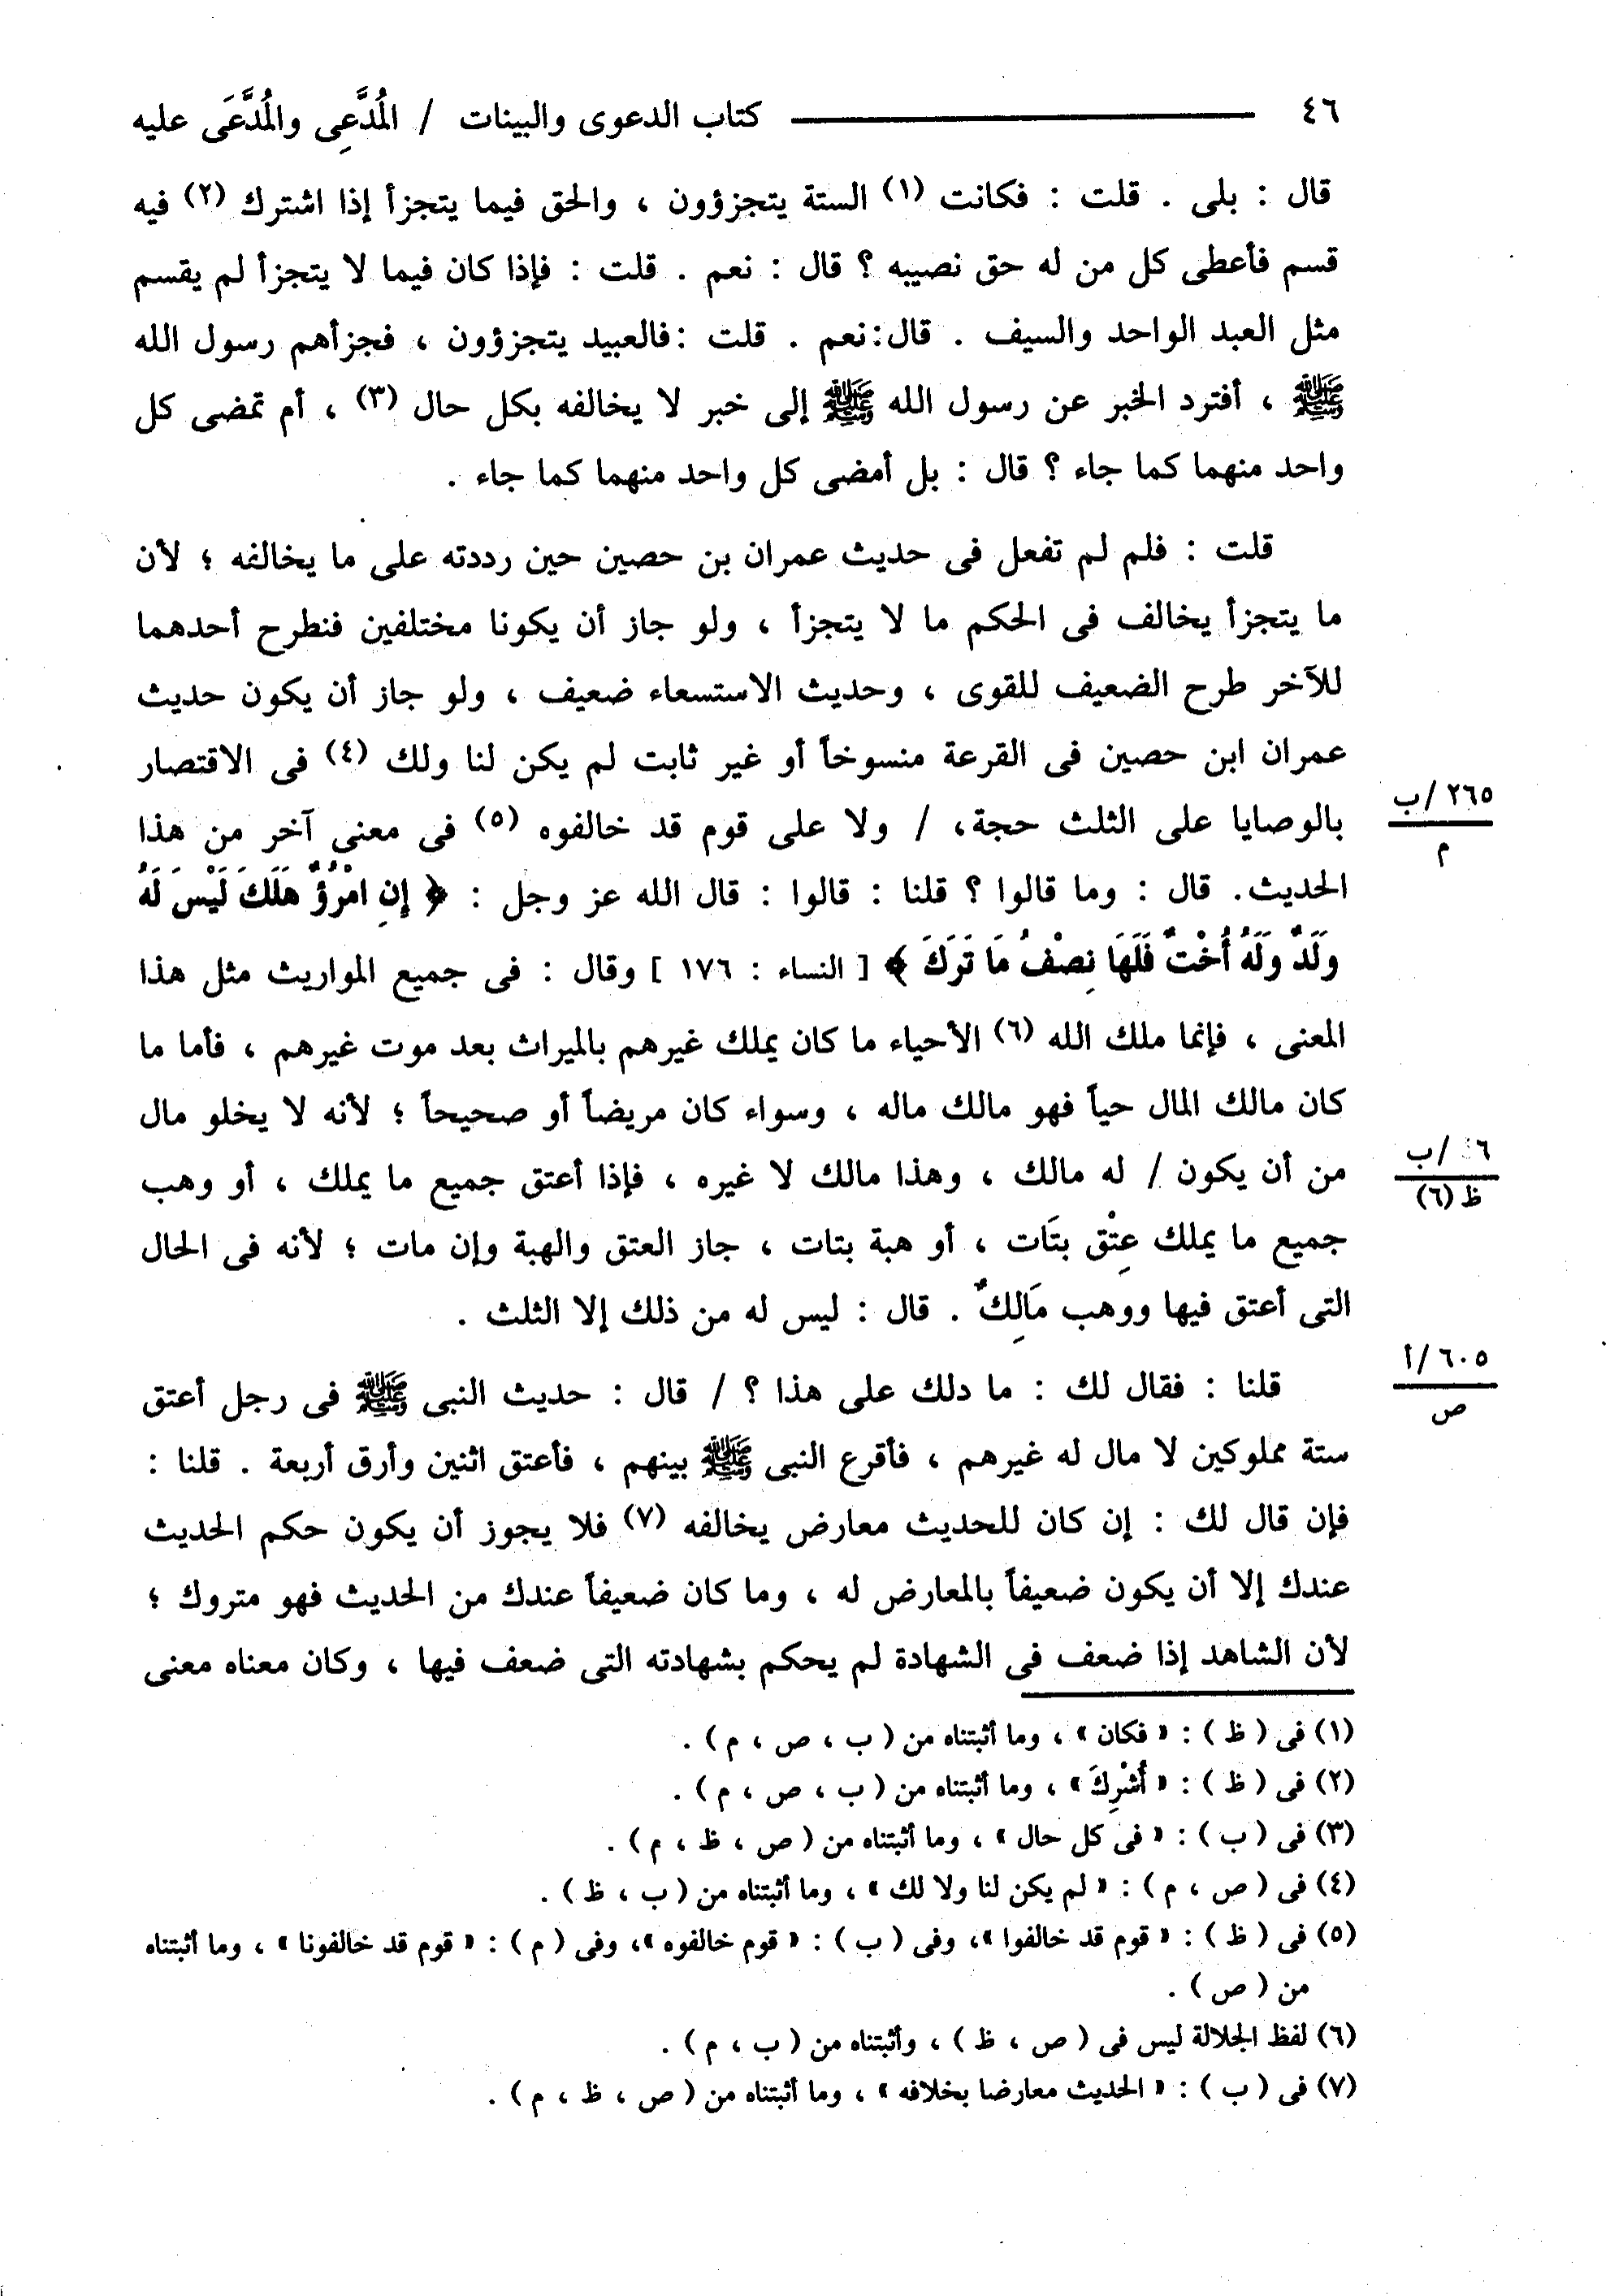 ٤٦ ــــــــــــــــــــ كتاب الدعوى والبينات / المُدَّعِى والمُدَّعَى عليه
قال : بلى . قلت : فكانت (١) الستة يتجزؤون ، والحق فيما يتجزأ إذا اشترك (٢) فيه
قسم فأعطى كل من له حق نصيبه ؟ قال : نعم . قلت : فإذا كان فيما لا يتجزأ لم يقسم
مثل العبد الواحد والسيف . قال:نعم . قلت :فالعبيد يتجزؤون ، فجزأهم رسول الله
ﷺ ، أفترد الخبر عن رسول الله ﷺ إلى خبر لا يخالفه بكل حال (٣) ، أم تمضى كل
واحد منهما كما جاء ؟ قال : بل أمضى كل واحد منهما كما جاء .
قلت : فلم لم تفعل فى حديث عمران بن حصين حين رددته على ما يخالفه ؛ لأن
ما يتجزأ يخالف فى الحكم ما لا يتجزأ ، ولو جاز أن يكونا مختلفين فنطرح أحدهما
للآخر طرح الضعيف للقوى ، وحديث الاستسعاء ضعيف ، ولو جاز أن يكون حديث
عمران ابن حصين فى القرعة منسوخاً أو غير ثابت لم يكن لنا ولك (٤) فى الاقتصار
بالوصايا على الثلث حجة، / ولا على قوم قد خالفوه (٥) فى معنى آخر من هذا
٢٦٥/ب
م
الحديث. قال : وما قالوا ؟ قلنا : قالوا : قال الله عز وجل : ﴿ إِنِ امْرُؤٌ هَلَكَ لَيْسَ لَهُ
وَلَدٌ وَلَهُ أُخْتٌ فَلَهَا نِصْفُ مَا تَرَكَ ﴾ [ النساء : ١٧٦ ] وقال : فى جميع المواريث مثل هذا
المعنى ، فإنما ملك الله (٦) الأحياء ما كان يملك غيرهم بالميراث بعد موت غيرهم ، فأما ما
كان مالك المال حياً فهو مالك ماله ، وسواء كان مريضاً أو صحيحاً ؛ لأنه لا يخلو مال
من أن يكون / له مالك ، وهذا مالك لا غيره ، فإذا أعتق جميع ما يملك ، أو وهب
/ب
ظ (٦)
جميع ما يملك عِتْق بتَات ، أو هبة بتات ، جاز العتق والهبة وإن مات ؛ لأنه فى الحال
التى أعتق فيها ووهب مَالِكٌ . قال : ليس له من ذلك إلا الثلث .
قلنا : فقال لك : ما دلك على هذا ؟ / قال : حديث النبى ﷺ فى رجل أعتق
٦٠٥/أ
ص
ستة مملوكين لا مال له غيرهم ، فأقرع النبى ﷺ بينهم ، فأعتق اثنين وأرق أربعة . قلنا :
فإن قال لك : إن كان للحديث معارض يخالفه (٧) فلا يجوز أن يكون حكم الحديث
عندك إلا أن يكون ضعيفاً بالمعارض له ، وما كان ضعيفاً عندك من الحديث فهو متروك ؛
لأن الشاهد إذا ضعف فى الشهادة لم يحكم بشهادته التى ضعف فيها ، وكان معناه معنى
(١) فى ( ظ ) : « فكان » ، وما أثبتناه من ( ب ، ص ، م ) .
(٢) فى ( ظ ) : « أُشْرِكَ » ، وما أثبتناه من ( ب ، ص ، م ) .
(٣) فى ( ب ) : « فى كل حال » ، وما أثبتناه من ( ص ، ظ ، م ) .
(٤) فى ( ص ، م ) : « لم يكن لنا ولا لك » ، وما أثبتناه من ( ب ، ظ ) .
(٥) فى ( ظ ) : « قوم قد خالفوا »، وفى ( ب ) : « قوم خالفوه »، وفى ( م ) : « قوم قد خالفونا » ، وما أثبتناه
من ( ص ) .
(٦) لفظ الجلالة ليس فى ( ص ، ظ ) ، وأثبتناه من ( ب ، م ) .
(٧) فى ( ب ) : « الحديث معارضا بخلافه » ، وما أثبتناه من ( ص ، ظ ، م ) .